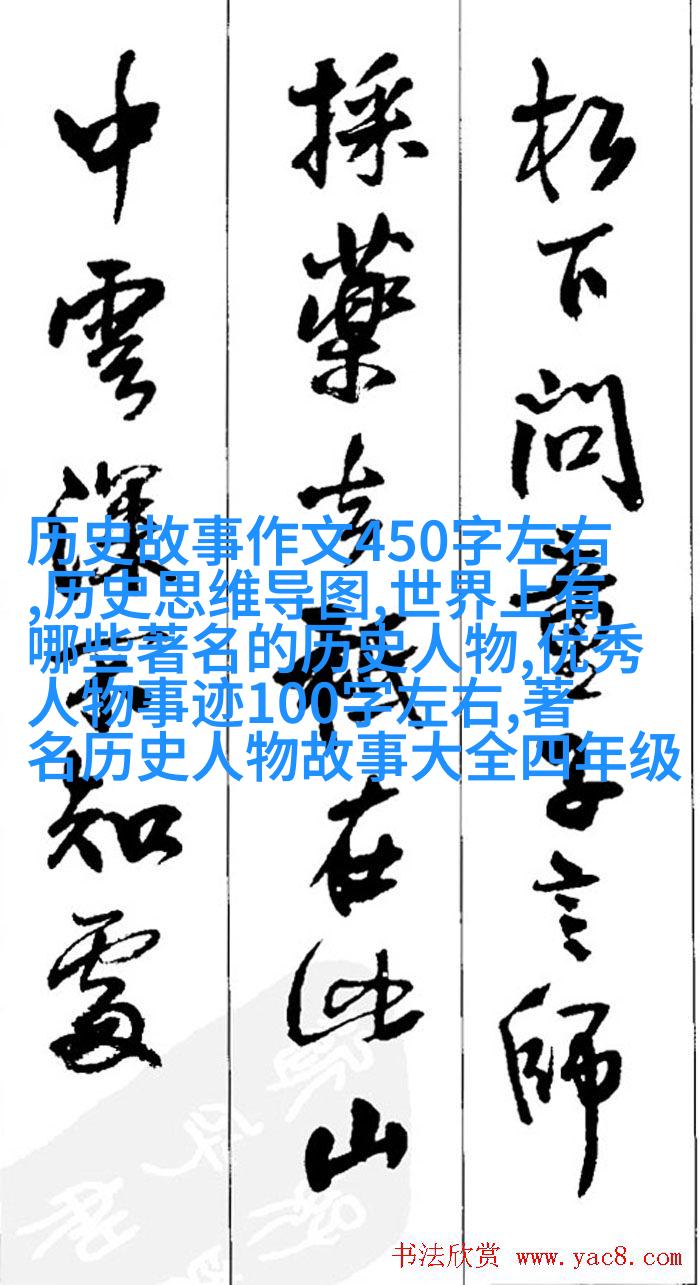 松下問童子言師
採藥去秖在此山
中雲深不知處
历史故事作文450字左右
,历史思维导图,世界上有
哪些著名的历史人物,优秀
人物事迹100字左右,著
名历史人物故事大全四年级
书法欣赏 www.yac8.com